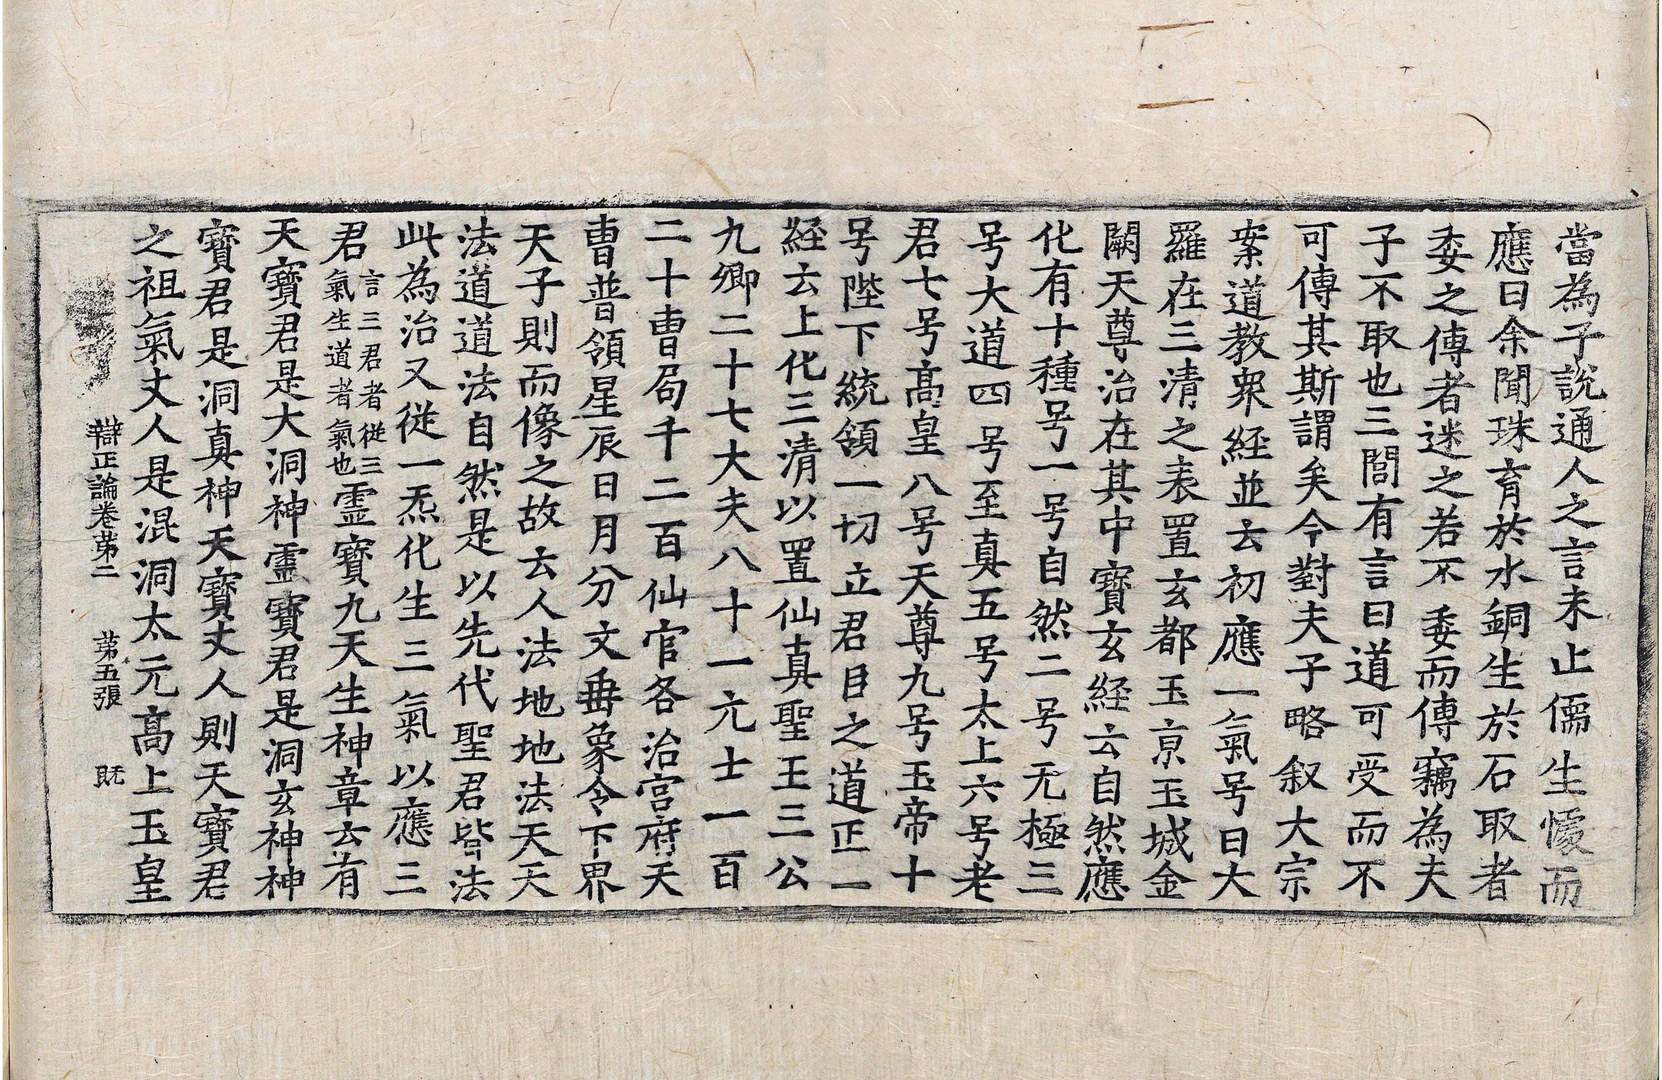 當為子說通人之言未止儒生懅而
應曰余聞珠育於水銅生於石取者
委之傳者迷之若不委而傳竊為夫
子不取也三閭有言曰道可受而不
可傳其斯謂矣今對夫子略叙大宗
案道教衆経並云初應一氣号曰大
羅在三清之表置玄都玉京玉城金
闕天尊治在其中寶玄経云自然應
化有十種号一号自然二号无極三
号大道四号至真五号太上六号老
君七号髙皇八号天尊九号玉帝十
号陛下統領一切立君目之道正一
経云上化三清以置仙真聖王三公
九卿二十七大夫八十一元士一百
二十曺局千二百仙官各治宫府天
曺普領星辰日月分文垂象令下界
天子則而像之故云人法地地法天天
法道道法自然是以先代聖君皆法
此為治又従一炁化生三氣以應三
君言三君者従三氣生道者氣也霊寶九天生神章云有
天寶君是大洞神霊寶君是洞玄神神
寶君是洞真神天寶丈人則天寶君
之祖氣丈人是混洞太元髙上玉皇
辯正論卷苐二 苐五張 旣